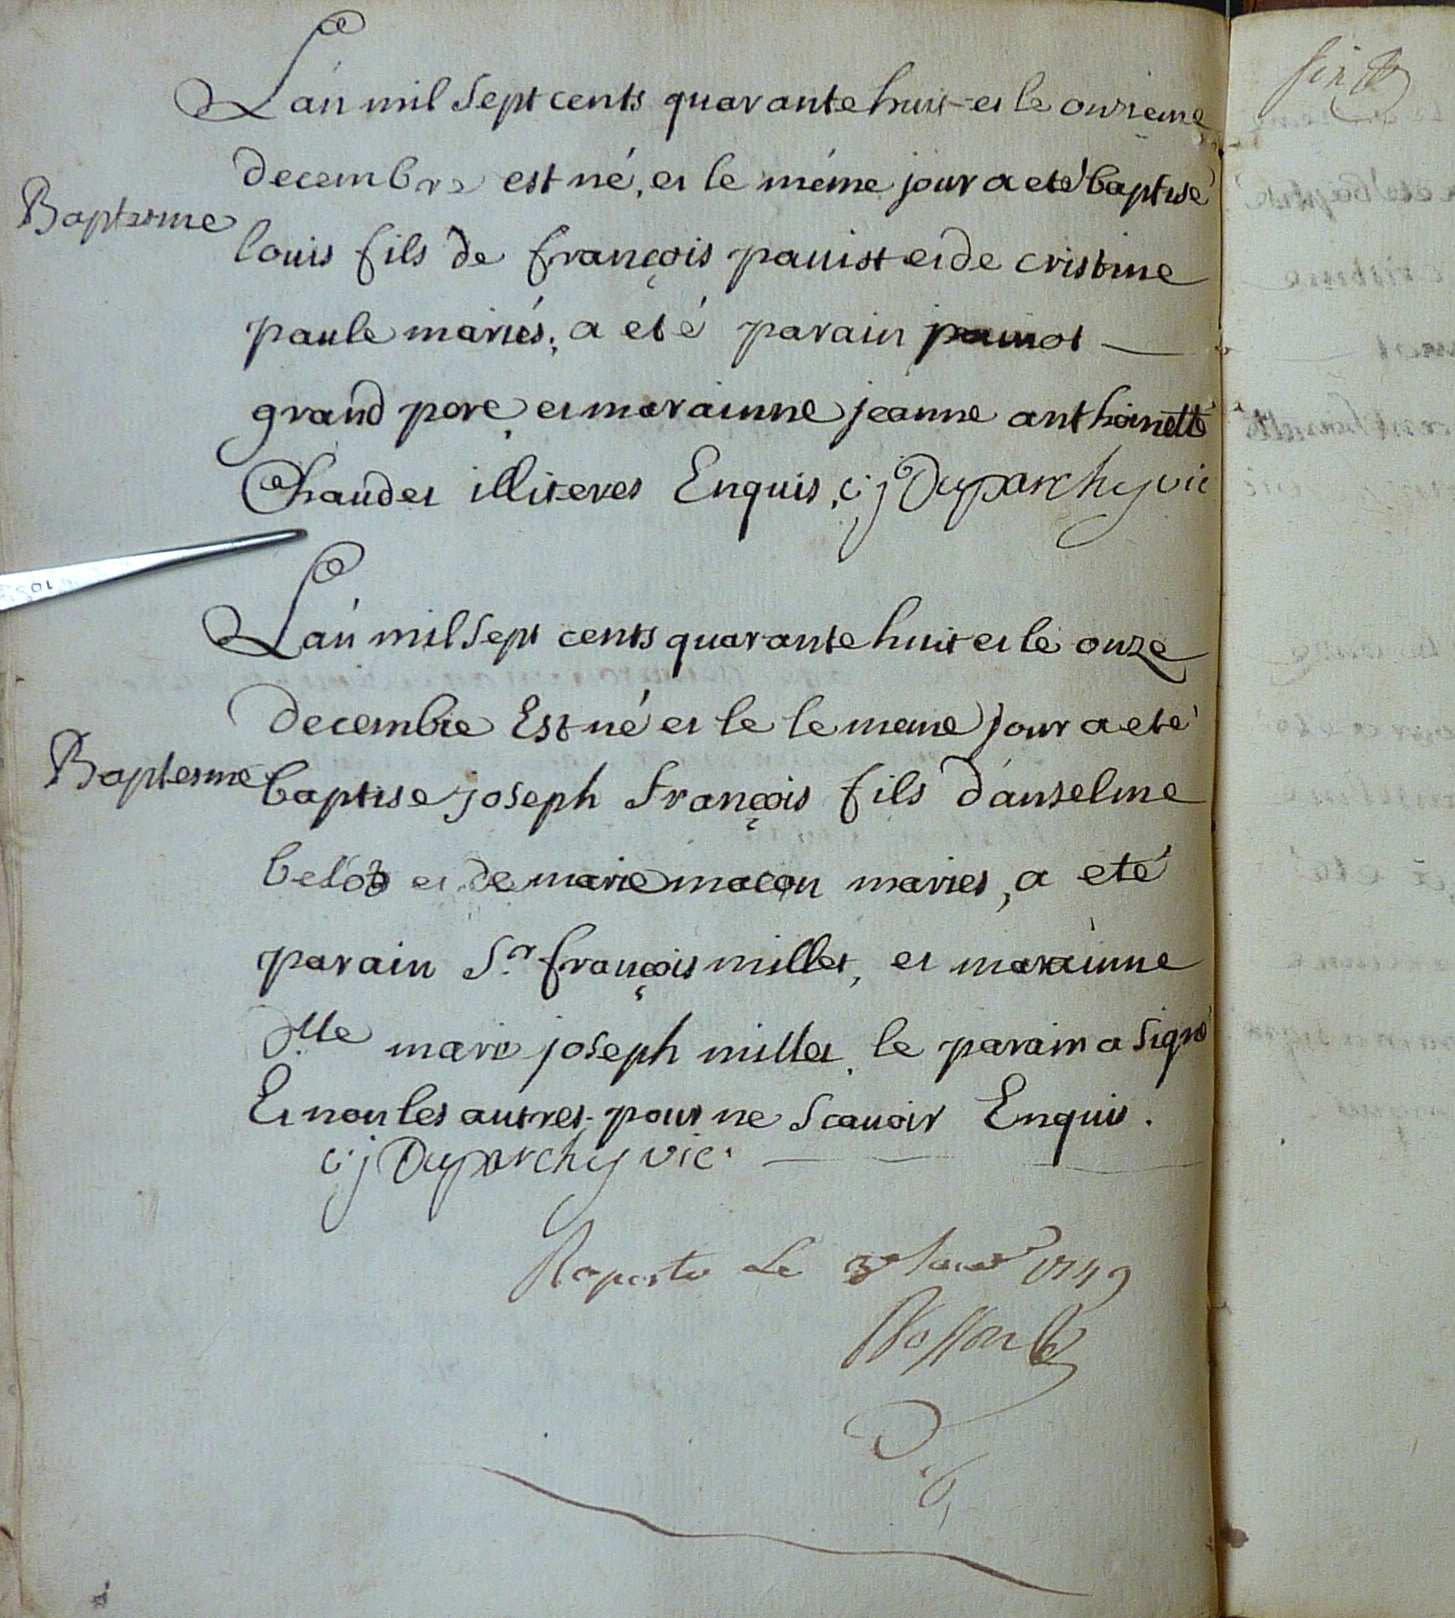 L'an mil sept cents quarante huit et le onzieme
Baptesme
decembre est né, et le méme jour a eté baptisé
louis fils de françois pauiot et de cristine
paule mariés, a eté parain pauiot
grand pere et marainne jeanne anthoinette
Chaudet illiteres Enquis, c j Duparchy vic
L'an mil sept cents quarante huit et le onze
decembre Est né et le le meme jour a eté
Baptesme
baptise joseph françois fils d'anselme
et de marie macon maries, a eté
parain S.r françois millet, et marainne
dlle marie joseph millet, le parain a signé
Et non les autres pour ne scauoir Enquis.
c j Duparchy vic.
Raporté Le 1749